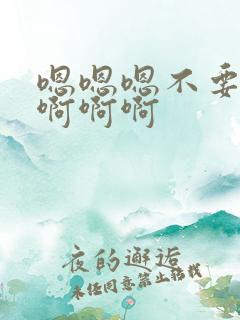 嗯嗯嗯不要
啊啊啊
夜的邂逅
未经同意禁止转载